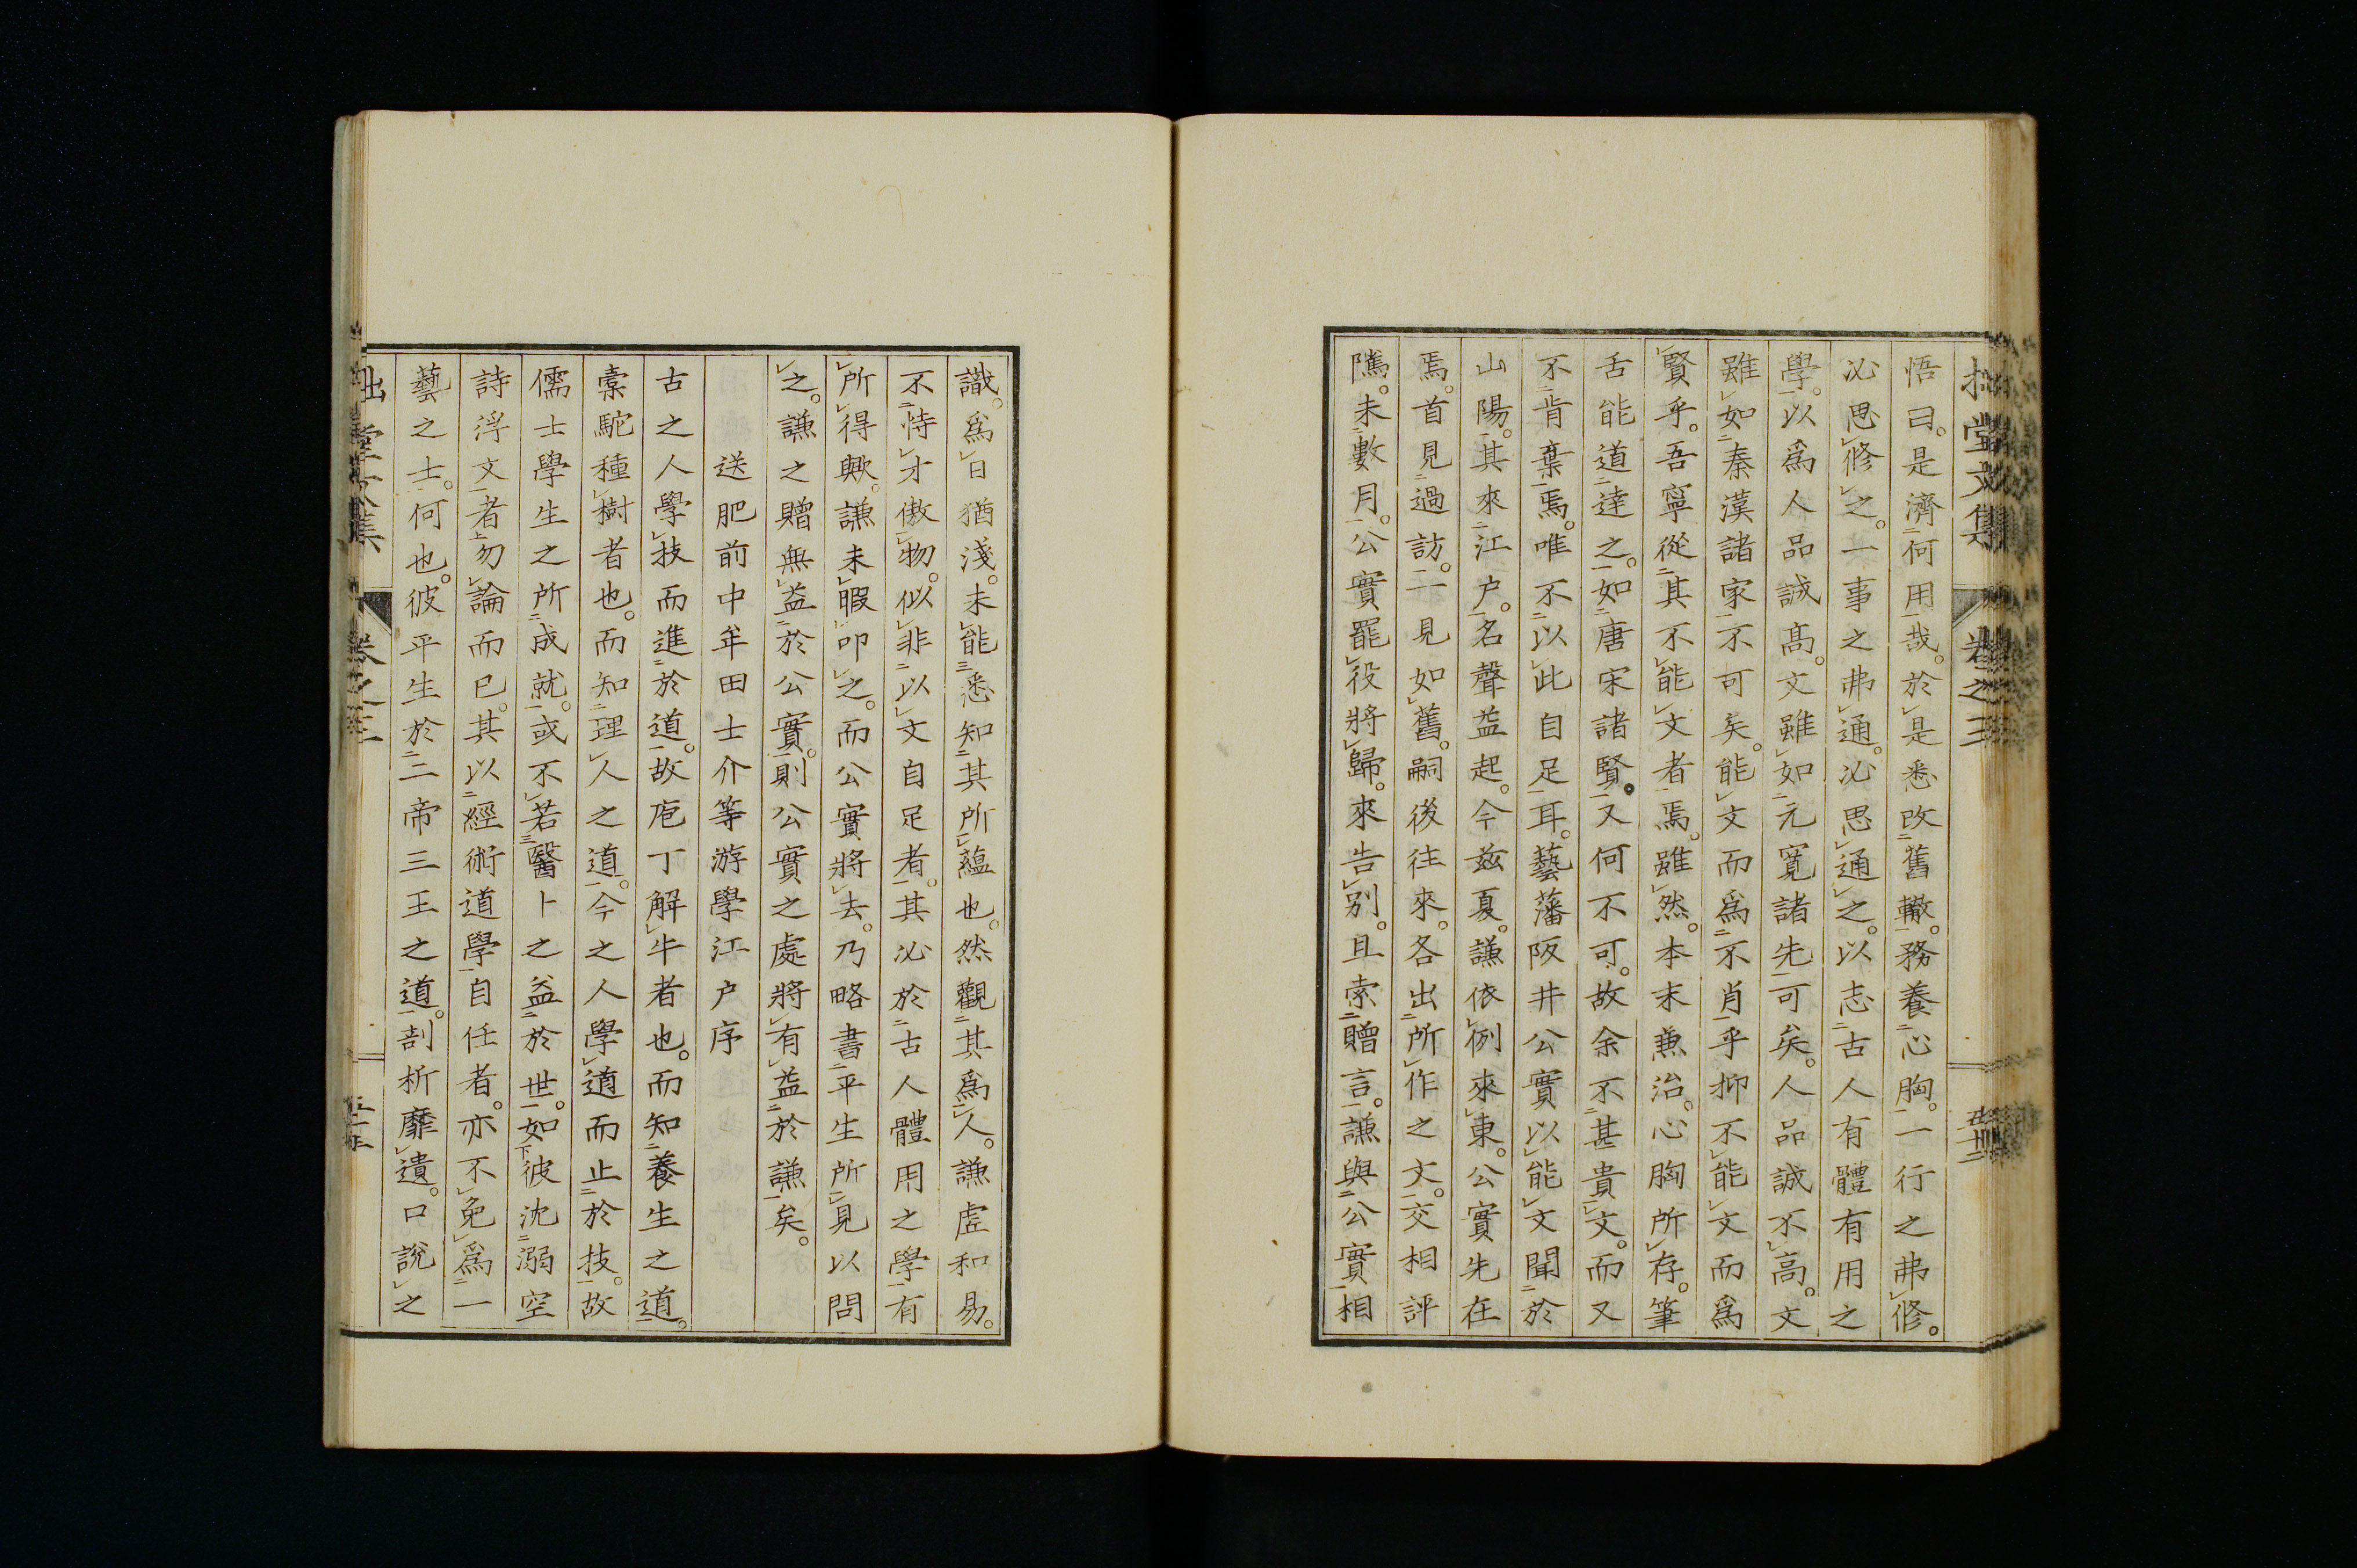 拙堂文集 卷之三
悟曰。是濟何用哉。於是悉改舊轍。務養心胸。一行之弗修。
必思修之。一事之弗通。必思通之。以志古人有體有用之
學。以爲人品誠高。文雖如元寬諸先可矣。人品誠不高。文
雖如秦漢諸家不可矣。能文而爲不肖乎抑不能文而爲
賢乎。吾寧從其不能文者焉。雖然。本末兼治。心胸所存。筆
舌能道達之。如唐宋諸賢。又何不可。故余不甚貴文。而又
不肯棄焉。唯不以此自足耳。藝藩阪井公實以能文聞於
山陽。其來江戶。名聲益起。今茲夏。謙依例來東。公實先在
焉。首見過訪。一見如舊。嗣後往來。各出所作之文。交相評
隲。未數月。公實罷役將歸。來告別。且索贈言。謙與公實相
識。爲日猶淺。未能悉知其所蘊也。然觀其爲人。謙虛和易。
不恃才傲物。似非以文自足者。其必於古人體用之學有
所得歟。謙未暇叩之。而公實將去。乃略書平生所見以問
之。謙之贈無益於公實。則公實之處將有益於謙矣。
送肥前中牟田士介等游學江戶序
古之人學技而進於道。故庖丁解牛者也。而知養生之道。
橐駝種樹者也。而知理人之道。今之人學道而止於技。故
儒士學生之所成就。或不若醫卜之益於世。如彼沈溺空
詩浮文者勿論而已。其以經術道學自任者。亦不免爲一
藝之士。何也。彼平生於二帝三王之道。剖析靡遺。口說之
拙堂文集 卷之三